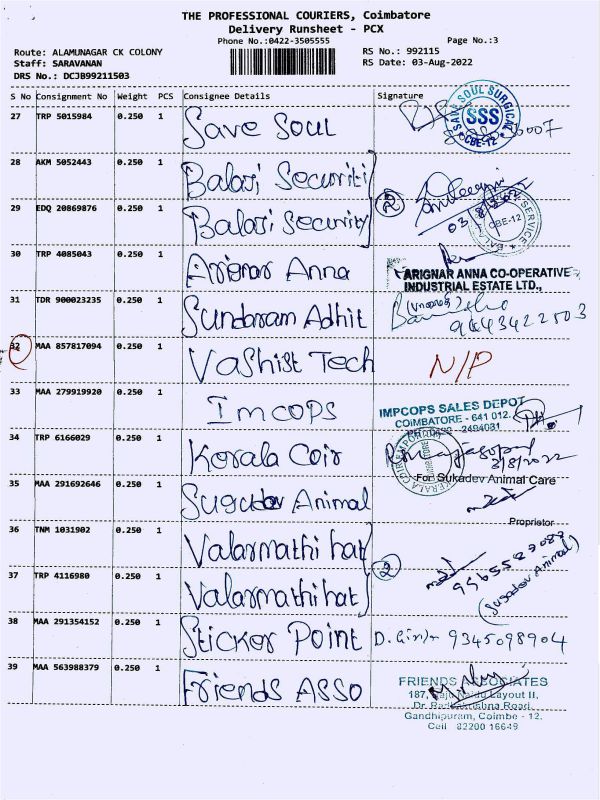 THE PROFESSIONAL COURIERS, Coimbatore
Delivery Runsheet - PCX
Phone No.:0422-3505555 Page No.:3
Route: ALAMUNAGAR CK COLONY RS No.: 992115
Staff: SARAVANAN RS Date: 03-Aug-2022
DRS No.: DCJB99211503
S No Consignment No Weight PCS Consignee Details Signature
27 TRP 5015984 0.250 1 Save Soul SAVE SOUL SURGICAL SSS CBE-12
28 AKM 5052443 0.250 1 Balaji Securiti
29 EDQ 20869876 0.250 1 Balaji Security 2 03/8/2022 CBE-12 SERVICE
30 TRP 4085043 0.250 1 Arignar Anna ARIGNAR ANNA CO-OPERATIVE
INDUSTRIAL ESTATE LTD.,
31 TDR 900023235 0.250 1 Sundaram Adhit
32 MAA 857817094 0.250 1 Vashist Tech N/P
33 MAA 279919920 0.250 1 Imcops IMPCOPS SALES DEPOT
COIMBATORE - 641 012.
2494031
34 TRP 6166029 0.250 1 Kerala Coir 3/8/2022
35 MAA 291692646 0.250 1 Sugadev Animal For Sukadev Animal Care
Proprietor
36 TNM 1031902 0.250 1 Valarmathi hat
37 TRP 4116980 0.250 1 Valarmathi hat 2 (Sugadev Animal)
38 MAA 291354152 0.250 1 Sticker Point 9345098904
39 MAA 563988379 0.250 1 Friends Asso FRIENDS ASSOCIATES
187, Raju Naidu Layout II,
Dr. Radhakrishna Road,
Gandhipuram, Coimbe - 12.
Cell 82200 16649